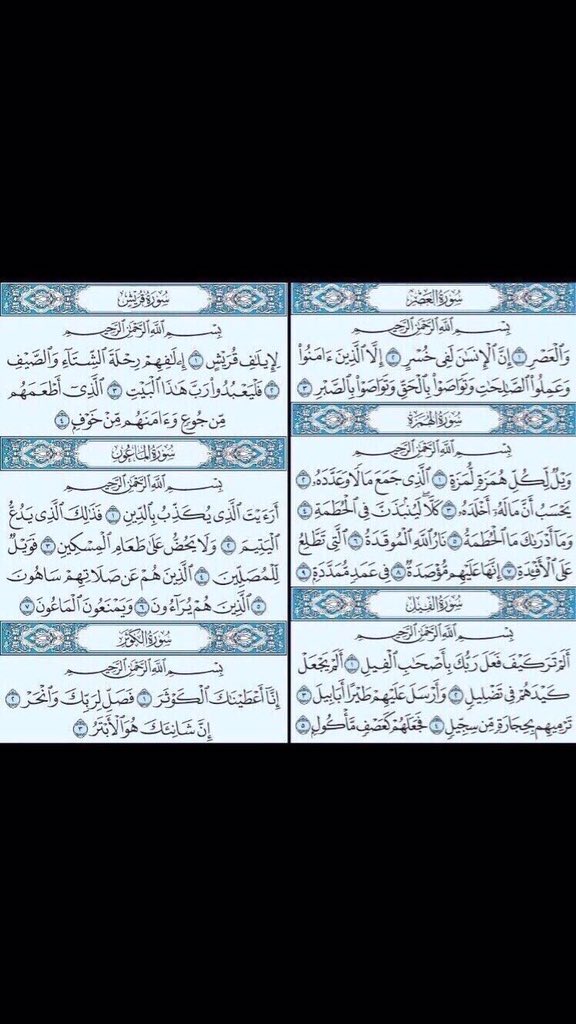 سُورَةُ العَصْرِ
بِسْمِ ٱللَّهِ ٱلرَّحْمَٰنِ ٱلرَّحِيمِ
وَٱلْعَصْرِ ١ إِنَّ ٱلْإِنسَٰنَ لَفِى خُسْرٍ ٢ إِلَّا ٱلَّذِينَ ءَامَنُوا۟
وَعَمِلُوا۟ ٱلصَّٰلِحَٰتِ وَتَوَاصَوْا۟ بِٱلْحَقِّ وَتَوَاصَوْا۟ بِٱلصَّبْرِ ٣
سُورَةُ الهُمَزَةِ
بِسْمِ ٱللَّهِ ٱلرَّحْمَٰنِ ٱلرَّحِيمِ
وَيْلٌ لِّكُلِّ هُمَزَةٍ لُّمَزَةٍ ١ ٱلَّذِى جَمَعَ مَالًا وَعَدَّدَهُۥ ٢
يَحْسَبُ أَنَّ مَالَهُۥٓ أَخْلَدَهُۥ ٣ كَلَّا ۖ لَيُنۢبَذَنَّ فِى ٱلْحُطَمَةِ ٤
وَمَآ أَدْرَىٰكَ مَا ٱلْحُطَمَةُ ٥ نَارُ ٱللَّهِ ٱلْمُوقَدَةُ ٦ ٱلَّتِى تَطَّلِعُ
عَلَى ٱلْأَفْـِٔدَةِ ٧ إِنَّهَا عَلَيْهِم مُّؤْصَدَةٌ ٨ فِى عَمَدٍ مُّمَدَّدَةٍۭ ٩
سُورَةُ الفِيلِ
بِسْمِ ٱللَّهِ ٱلرَّحْمَٰنِ ٱلرَّحِيمِ
أَلَمْ تَرَ كَيْفَ فَعَلَ رَبُّكَ بِأَصْحَٰبِ ٱلْفِيلِ ١ أَلَمْ يَجْعَلْ
كَيْدَهُمْ فِى تَضْلِيلٍ ٢ وَأَرْسَلَ عَلَيْهِمْ طَيْرًا أَبَابِيلَ ٣
تَرْمِيهِم بِحِجَارَةٍ مِّن سِجِّيلٍ ٤ فَجَعَلَهُمْ كَعَصْفٍ مَّأْكُولٍۭ ٥
سُورَةُ قُرَيْشٍ
بِسْمِ ٱللَّهِ ٱلرَّحْمَٰنِ ٱلرَّحِيمِ
لِإِيلَٰفِ قُرَيْشٍ ١ إِۦلَٰفِهِمْ رِحْلَةَ ٱلشِّتَآءِ وَٱلصَّيْفِ
٢ فَلْيَعْبُدُوا۟ رَبَّ هَٰذَا ٱلْبَيْتِ ٣ ٱلَّذِىٓ أَطْعَمَهُم
مِّن جُوعٍ وَءَامَنَهُم مِّنْ خَوْفٍۭ ٤
سُورَةُ المَاعُونِ
بِسْمِ ٱللَّهِ ٱلرَّحْمَٰنِ ٱلرَّحِيمِ
أَرَءَيْتَ ٱلَّذِى يُكَذِّبُ بِٱلدِّينِ ١ فَذَٰلِكَ ٱلَّذِى يَدُعُّ
ٱلْيَتِيمَ ٢ وَلَا يَحُضُّ عَلَىٰ طَعَامِ ٱلْمِسْكِينِ ٣ فَوَيْلٌ
لِّلْمُصَلِّينَ ٤ ٱلَّذِينَ هُمْ عَن صَلَاتِهِمْ سَاهُونَ
٥ ٱلَّذِينَ هُمْ يُرَآءُونَ ٦ وَيَمْنَعُونَ ٱلْمَاعُونَ ٧
سُورَةُ الكَوْثَرِ
بِسْمِ ٱللَّهِ ٱلرَّحْمَٰنِ ٱلرَّحِيمِ
إِنَّآ أَعْطَيْنَٰكَ ٱلْكَوْثَرَ ١ فَصَلِّ لِرَبِّكَ وَٱنْحَرْ ٢
إِنَّ شَانِئَكَ هُوَ ٱلْأَبْتَرُ ٣